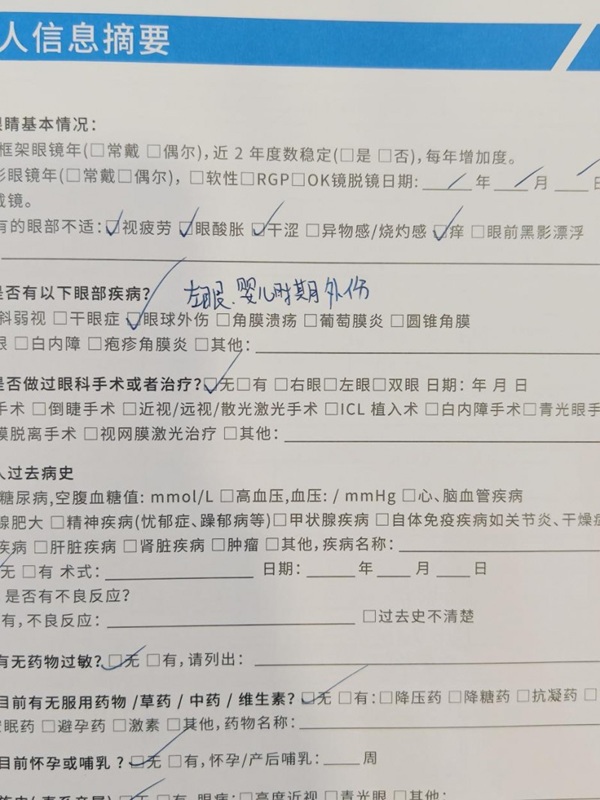 人信息摘要
眼睛基本情况：
框架眼镜年(□常戴 □偶尔)，近 2 年度数稳定(□是 □否)，每年增加度。
形眼镜年(□常戴□偶尔)，□软性□RGP□OK镜脱镜日期: ____年____月____日
戴镜。
有的眼部不适:☑视疲劳 ☑眼酸胀 ☑干涩 □异物感/烧灼感☑痒 □眼前黑影漂浮
是否有以下眼部疾病? 左眼.婴儿时期外伤
斜弱视 □干眼症 ☑眼球外伤 □角膜溃疡 □葡萄膜炎 □圆锥角膜
眼 □白内障 □疱疹角膜炎 □其他: ____
是否做过眼科手术或者治疗?☑无□有 □右眼□左眼□双眼 日期: 年 月 日
手术 □倒睫手术 □近视/远视/散光激光手术 □ICL 植入术 □白内障手术□青光眼手
膜脱离手术 □视网膜激光治疗 □其他: ____
人过去病史
糖尿病,空腹血糖值: mmol/L □高血压,血压: / mmHg □心、脑血管疾病
腺肥大 □精神疾病(忧郁症、躁郁病等)□甲状腺疾病 □自体免疫疾病如关节炎、干燥症
疾病 □肝脏疾病 □肾脏疾病 □肿瘤 □其他,疾病名称: ____
无 □有 术式: ____ 日期: ____年____月____日
是否有不良反应?
有,不良反应: ____ □过去史不清楚
有无药物过敏?☑无 □有,请列出: ____
目前有无服用药物 /草药 / 中药 / 维生素? ☑无 □有:□降压药 □降糖药 □抗凝药
安眠药 □避孕药 □激素 □其他,药物名称: ____
目前怀孕或哺乳 ?☑无 □有,怀孕/产后哺乳: ____周
□有, 眼病: □高度近视 □青光眼 □其他: